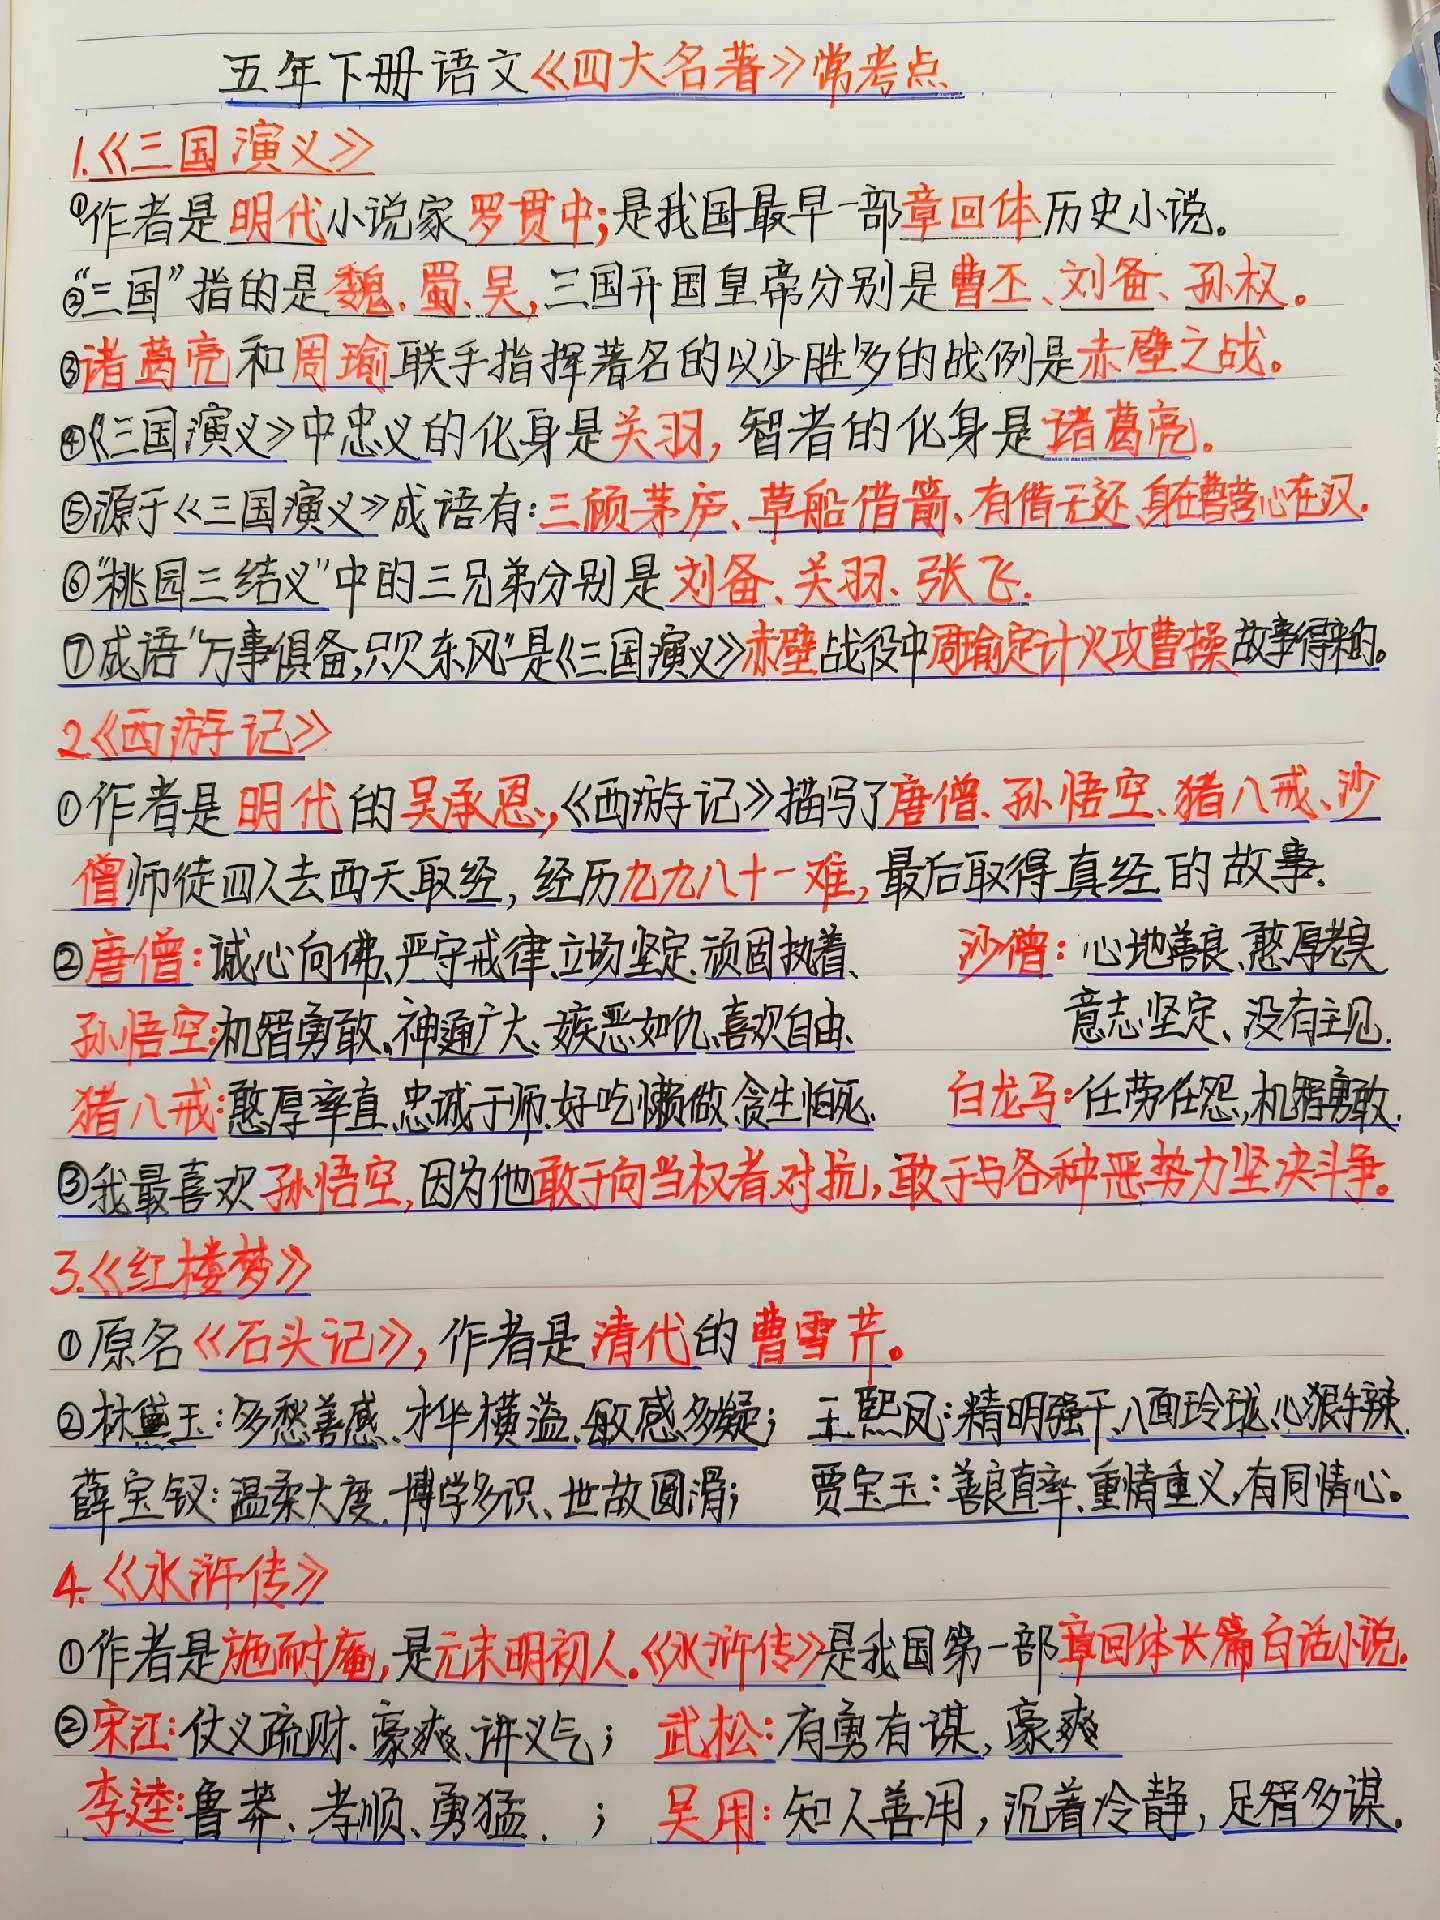 五年下册语文《四大名著》常考点
1.《三国演义》
①作者是明代小说家罗贯中;是我国最早一部章回体历史小说。
②“三国”指的是魏、蜀、吴,三国开国皇帝分别是曹丕、刘备、孙权。
③诸葛亮和周瑜联手指挥著名的以少胜多的战例是赤壁之战。
④《三国演义》中忠义的化身是关羽,智者的化身是诸葛亮.
⑤源于《三国演义》成语有:三顾茅庐、草船借箭、有借无还、身在曹营心在汉.
⑥“桃园三结义”中的三兄弟分别是刘备、关羽、张飞.
⑦成语“万事俱备,只欠东风”是《三国演义》赤壁战役中周瑜定计火攻曹操故事得来的。
2.《西游记》
①作者是明代的吴承恩,《西游记》描写了唐僧、孙悟空、猪八戒、沙
僧师徒四人去西天取经,经历九九八十一难,最后取得真经的故事.
②唐僧:诚心向佛、严守戒律、立场坚定、顽固执着、 沙僧:心地善良、憨厚老实
孙悟空:机智勇敢、神通广大、嫉恶如仇、喜欢自由、 意志坚定、没有主见.
猪八戒:憨厚率直、忠诚于师、好吃懒做、贪生怕死. 白龙马:任劳任怨,机智勇敢.
③我最喜欢孙悟空,因为他敢于向当权者对抗,敢于与各种恶势力坚决斗争。
3.《红楼梦》
①原名《石头记》,作者是清代的曹雪芹。
②林黛玉:多愁善感、才华横溢、敏感多疑; 王熙凤:精明强干、八面玲珑、心狠手辣.
薛宝钗:温柔大度、博学多识、世故圆滑; 贾宝玉:善良直率、重情重义,有同情心。
4.《水浒传》
①作者是施耐庵,是元末明初人.《水浒传》是我国第一部章回体长篇白话小说.
②宋江:仗义疏财、豪爽、讲义气; 武松:有勇有谋,豪爽
李逵:鲁莽、孝顺、勇猛.; 吴用:知人善用,沉着冷静,足智多谋.